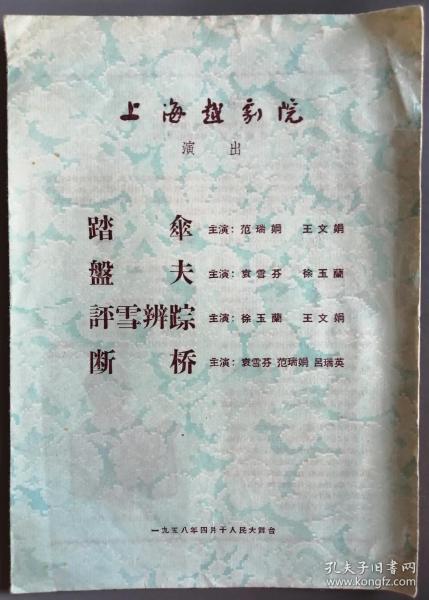 上海越劇院
演出
踏傘 主演：范瑞娟 王文娟
盤夫 主演：袁雪芬 徐玉蘭
評雪辨踪 主演：徐玉蘭 王文娟
断桥 主演：袁雪芬 范瑞娟 呂瑞英
一九五八年四月于人民大舞台
孔夫子旧书网
www.kongfz.com